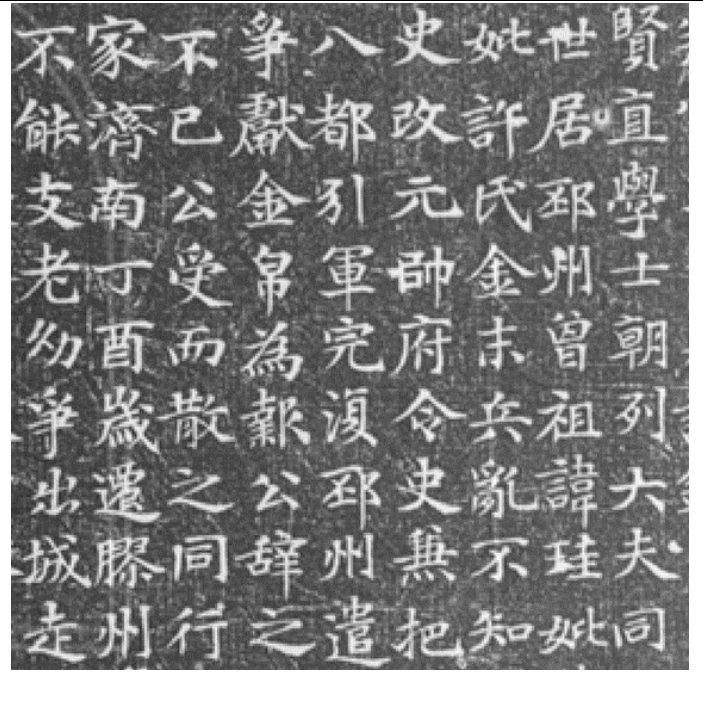 賢直學士朝列大夫同
世居邳州曾祖諱珪妣
妣許氏金末兵亂不知
史改元帥府令史兼把
八都引軍完復邳州遣
爭獻金帛為報公辞之
不已公受而散之同行
家濟南丁酉歲遷膠州
不能支老幼爭出城走